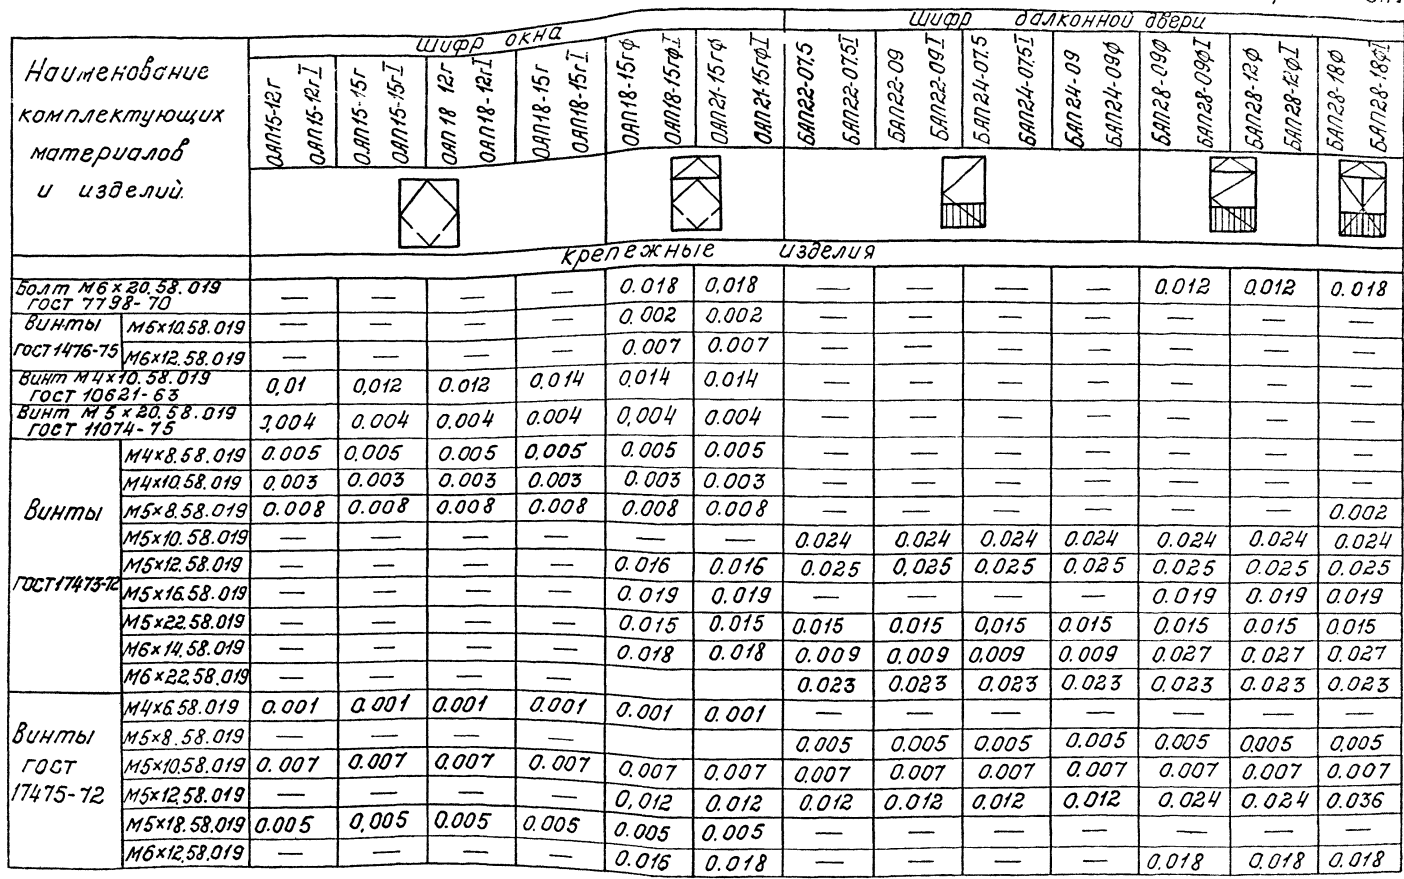 Шифр балконной двери
Шифр окна
Наименование
комплектующих
материалов
и изделий.
ОАП15-12г
ОАП15-12гI
ОАП15-15г
ОАП15-15гI
ОАП18 12г
ОАП18-12гI
ОАП18-15г
ОАП18-15гI
ОАП18-15гф
ОАП18-15гфI
ОАП21-15гф
ОАП21-15гфI
БАП22-07.5
БАП22-07.5I
БАП22-09
БАП22-09I
БАП24-07.5
БАП24-07.5I
БАП24-09
БАП24-09ф
БАП28-09ф
БАП28-09фI
БАП28-12ф
БАП28-12фI
БАП28-18ф
БАП28-18фI
крепежные изделия
Болт М6×20.58.019
ГОСТ 7798-70
— — — — 0.018 0,018 — — — — 0.012 0.012 0.018
Винты
ГОСТ 1476-75
М6×10.58.019 — — — — 0.002 0.002 — — — — — — —
М6×12.58.019 — — — — 0.007 0.007 — — — — — — —
Винт М4×10.58.019
ГОСТ 10621-63
0,01 0,012 0.012 0.014 0,014 0.014 — — — — — — —
Винт М5×20.58.019
ГОСТ 11074-75
0,004 0.004 0,004 0.004 0,004 0.004 — — — — — — —
Винты
ГОСТ17473-72
М4×8.58.019 0.005 0,005 0.005 0,005 0.005 0.005 — — — — — — —
М4×10.58.019 0.003 0.003 0.003 0.003 0.003 0.003 — — — — — — —
М5×8.58.019 0.008 0.008 0.008 0.008 0.008 0.008 — — — — — — 0.002
М5×10.58.019 — — — — — — 0.024 0.024 0.024 0.024 0.024 0.024 0.024
М5×12.58.019 — — — — 0.016 0.016 0.025 0,025 0.025 0.025 0.025 0.025 0.025
М5×16.58.019 — — — — 0.019 0.019 — — — — 0.019 0.019 0.019
М5×22.58.019 — — — — 0.015 0.015 0.015 0.015 0,015 0.015 0.015 0.015 0.015
М6×14.58.019 — — — — 0.018 0.018 0.009 0.009 0.009 0.009 0.027 0.027 0.027
М6×22.58.019 — — — — 0.023 0.023 0.023 0.023 0.023 0.023 0.023
Винты
ГОСТ
17475-72
М4×6.58.019 0.001 0.001 0.001 0.001 0.001 0.001 — — — — — — —
М5×8.58.019 — — — — 0.005 0.005 0.005 0.005 0.005 0.005 0,005
М5×10.58.019 0.007 0.007 0.007 0.007 0.007 0.007 0,007 0.007 0.007 0.007 0.007 0.007 0.007
М5×12.58.019 — — — — 0,012 0.012 0.012 0.012 0.012 0.012 0.024 0.024 0.036
М5×18.58.019 0.005 0,005 0.005 0.005 0.005 0.005 — — — — — — —
М6×12.58.019 — — — — 0.016 0.018 — — — — 0.018 0.018 0.018